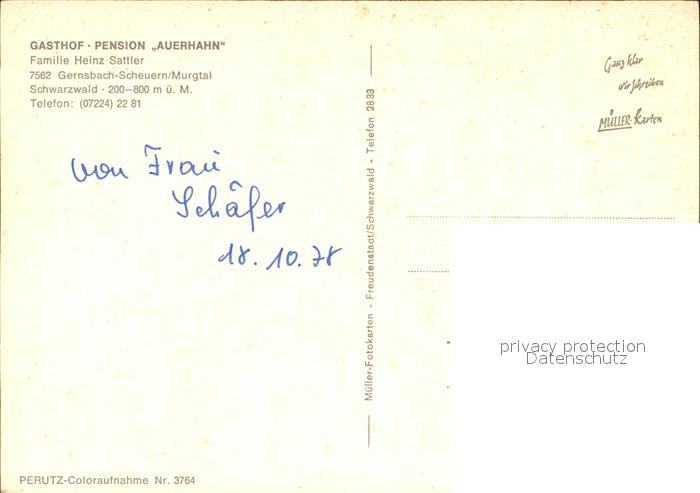 GASTHOF · PENSION „AUERHAHN“
Familie Heinz Sattler
7562 Gernsbach-Scheuern/Murgtal
Schwarzwald · 200—800 m ü. M.
Telefon: (07224) 22 81
von Frau
Schäfer
18. 10. 78
Müller-Fotokarten - Freudenstadt/Schwarzwald - Telefon 2833
Ganz klar
wir schreiben
MÜLLER-Karten
privacy protection
Datenschutz
PERUTZ-Coloraufnahme Nr. 3764